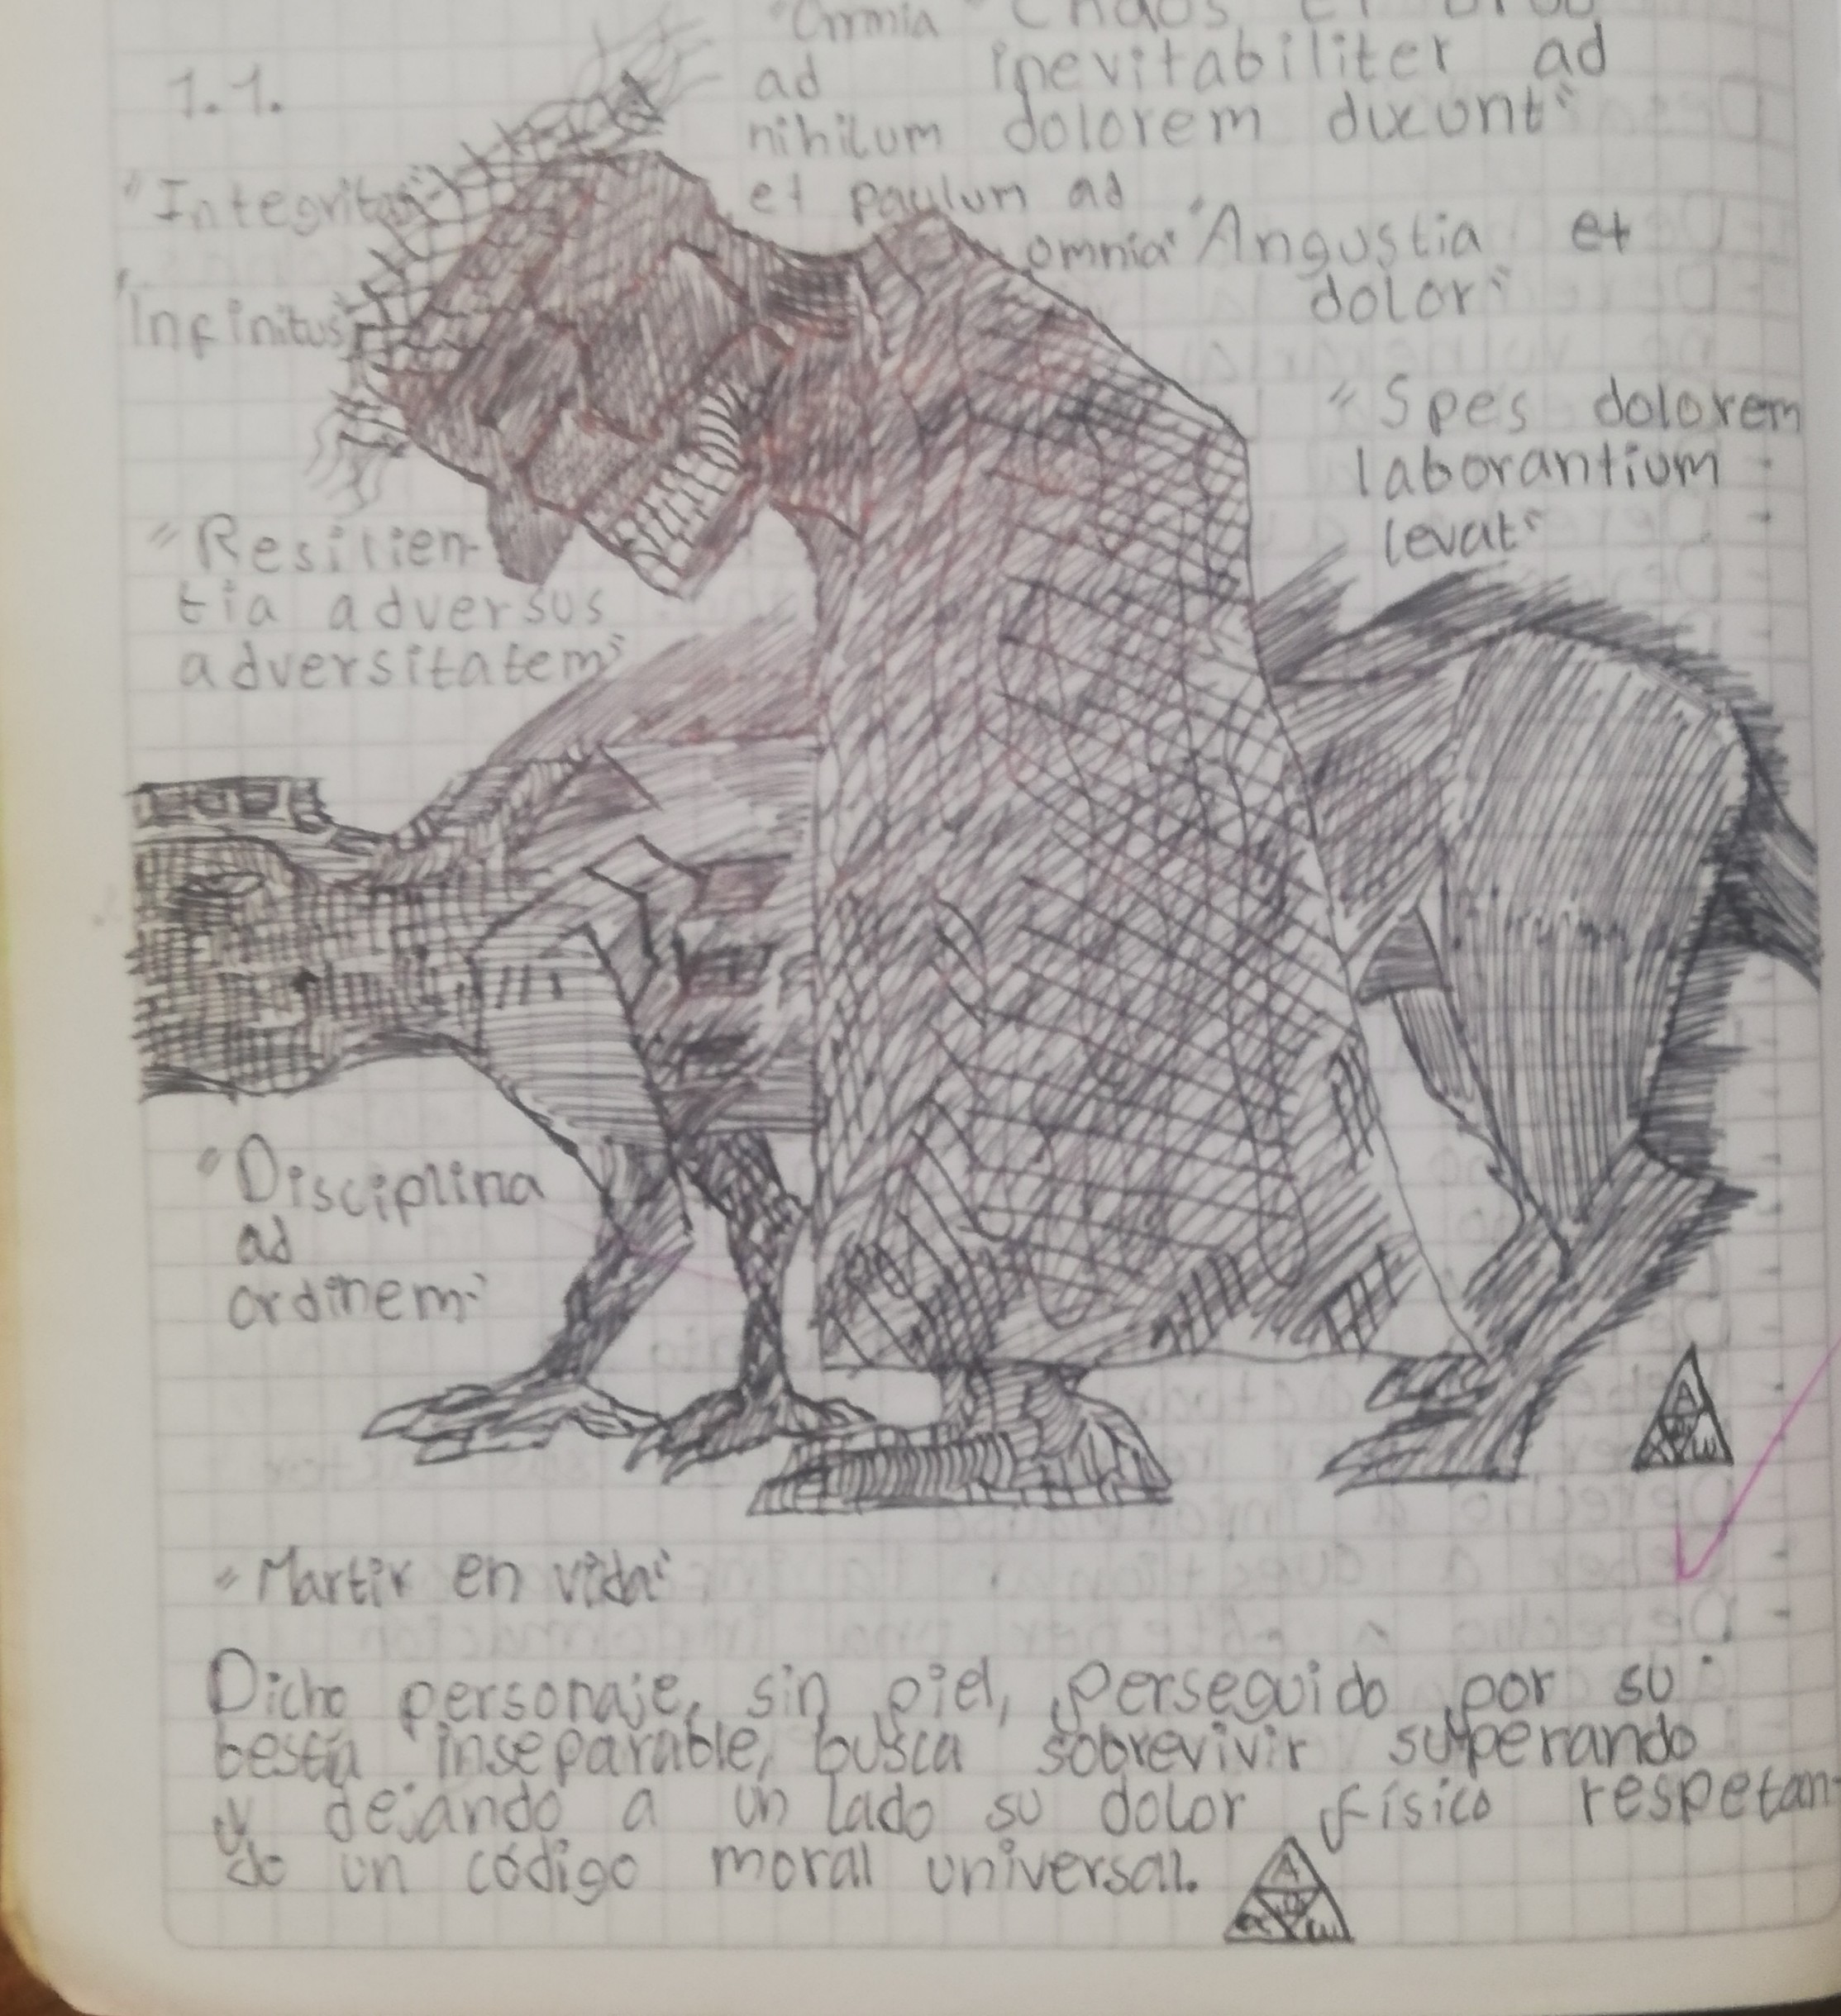 1.1.
"Omnia
ad
nihilum
et paulum ad
omnia"
"Chaos et
inevitabiliter ad
dolorem ducunt"
"Integritas"
"Infinitus"
"Angustia et
dolor"
"Spes dolorem
laborantium
levat"
"Resilien-
tia adversus
adversitatem"
"Disciplina
ad
ordinem"
"Martir en vida"
Dicho personaje, sin piel, perseguido por su
bestia inseparable, busca sobrevivir superando
y dejando a un lado su dolor físico respetan-
do un código moral universal.